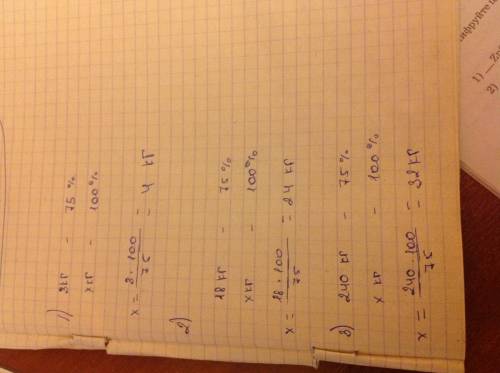 1) 3кг - 75%
x кг - 100%
x = 3 · 100 / 75 = 4 кг
2) 18 кг - 75%
x кг - 100%
x = 18 · 100 / 75 = 24 кг
3) 240 кг - 75%
x кг - 100%
x = 240 · 100 / 75 = 32 кг
1)
2)